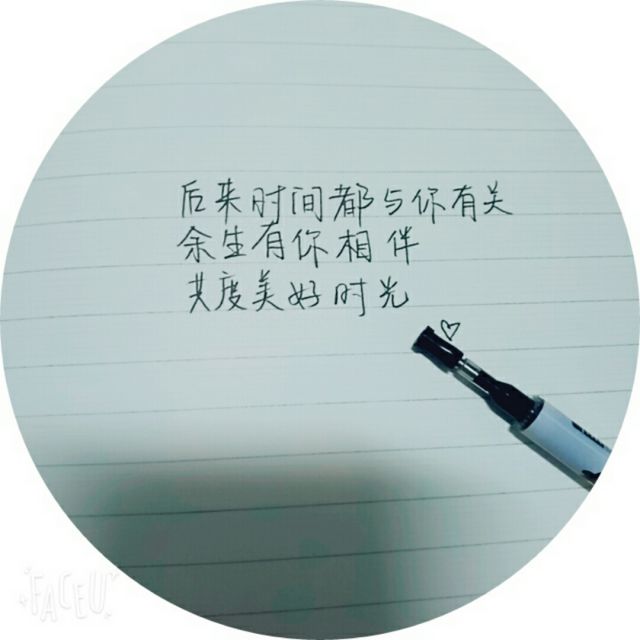 后来时间都与你有关
余生有你相伴
共度美好时光
FACEU